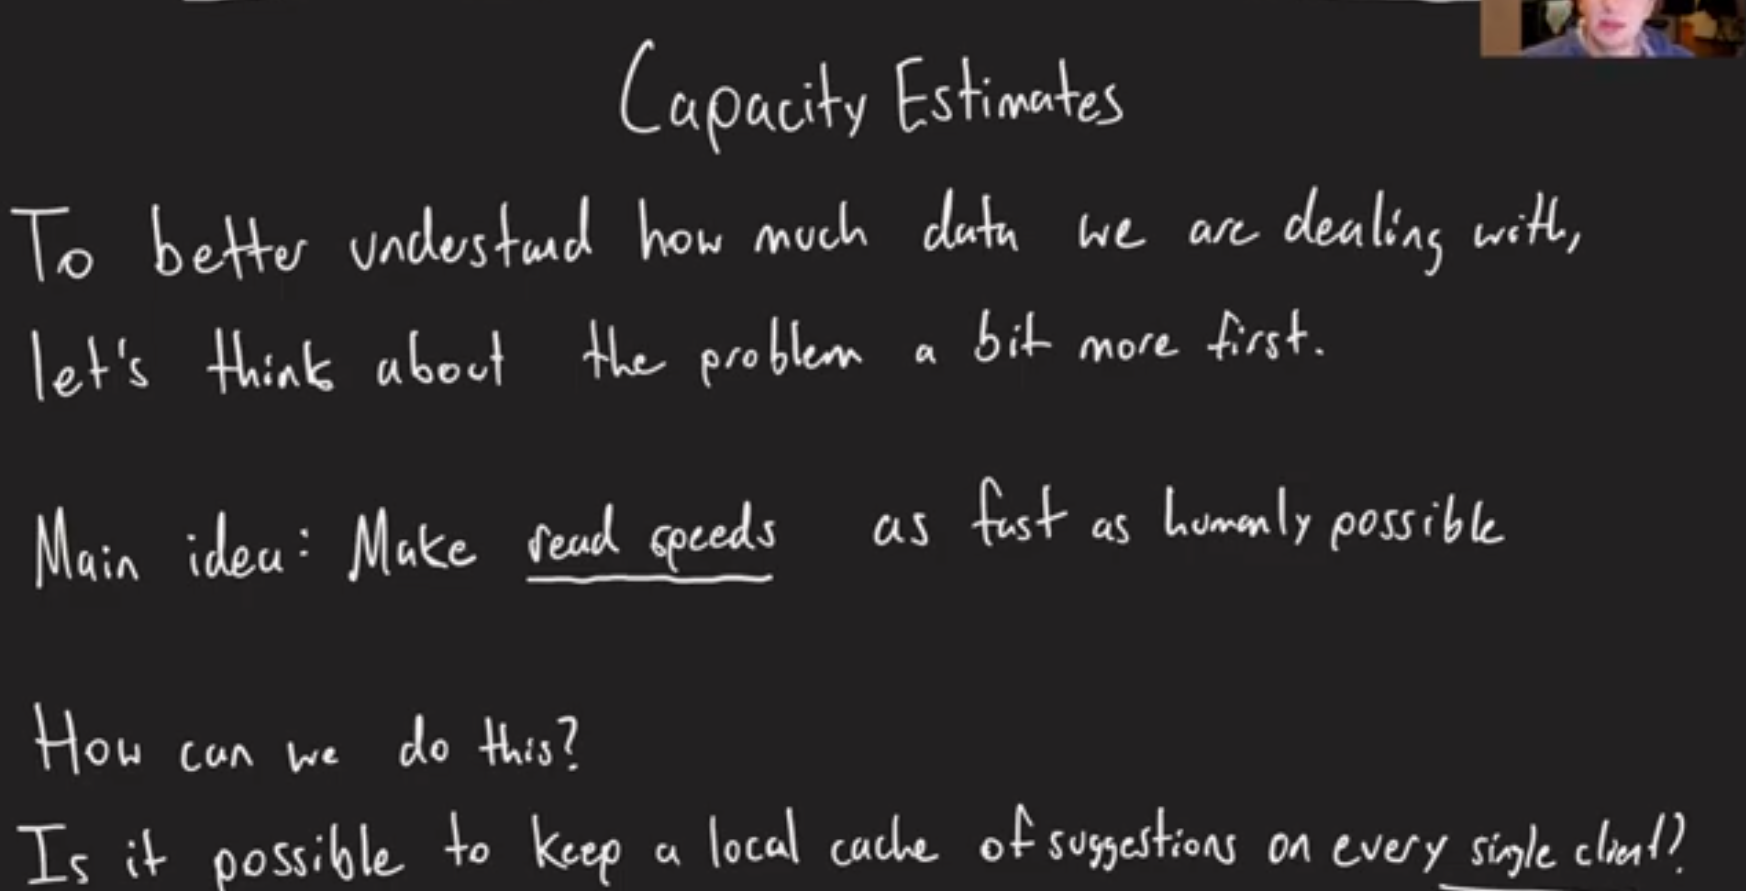 Capacity Estimates
To better understand how much data we are dealing with,
let's think about the problem a bit more first.
Main idea: Make read speeds as fast as humanly possible
How can we do this?
Is it possible to keep a local cache of suggestions on every single client?